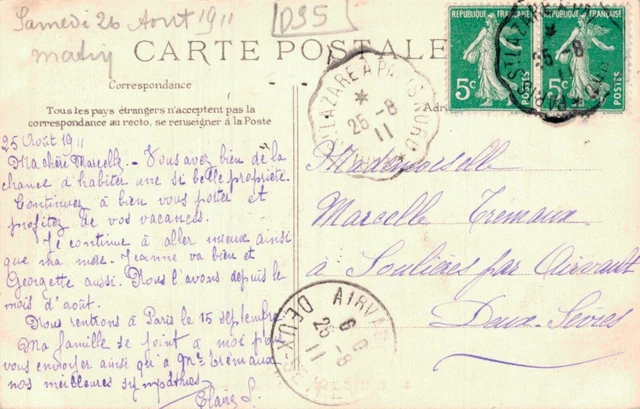 Samedi 26 Août 1911
matin
D95
CARTE POSTALE
RÉPUBLIQUE FRANÇAISE
5c
POSTES
RÉPUBLIQUE FRANÇAISE
5c
POSTES
25 -8
11
ST LAZARE À PARIS
25 -8
11
Correspondance
Tous les pays étrangers n'acceptent pas la
correspondance au recto, se renseigner à la Poste
25 Août 1911
Ma chère Marcelle - Vous avez bien de la
chance d'habiter une si belle propriété.
Continuez à bien vous porter et
profitez de vos vacances.
Je continue à aller mieux ainsi
que ma mère. Jeanne va bien et
Georgette aussi. Nous l'avons depuis le
mois d'août.
Nous rentrons à Paris le 15 septembre
Ma famille se joint à moi pour
vous envoyer ainsi qu'à Mme Trémaux
nos meilleures sympathies
Claire S.
Mademoiselle
Marcelle Trémaux
à Soulières par Airvault
Deux-Sèvres
AIRVAULT
26 -8
11
DEUX-SÈVRES